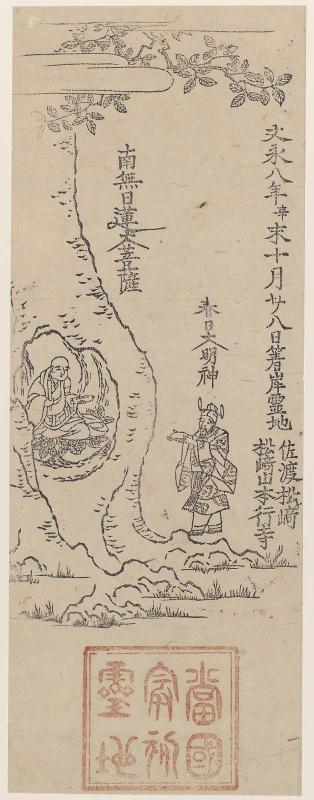 文永八年辛未十月廿八日着岸霊地
佐渡松崎
松崎山本行寺
春日大明神
南無日蓮大菩薩
當國
最初
靈地